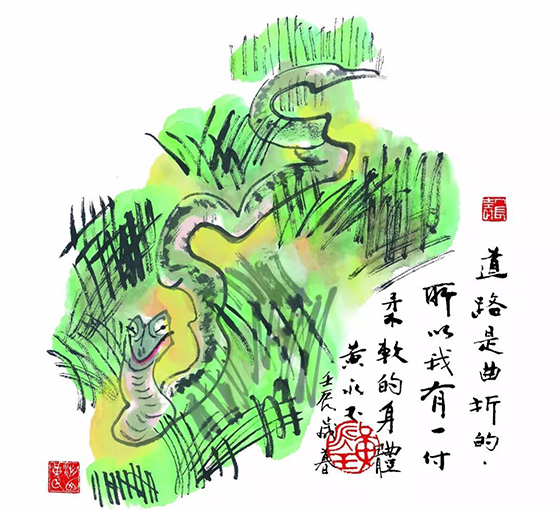 道路是曲折的.
所以我有一付
柔軟的身體
黄永玉
壬辰歲暮